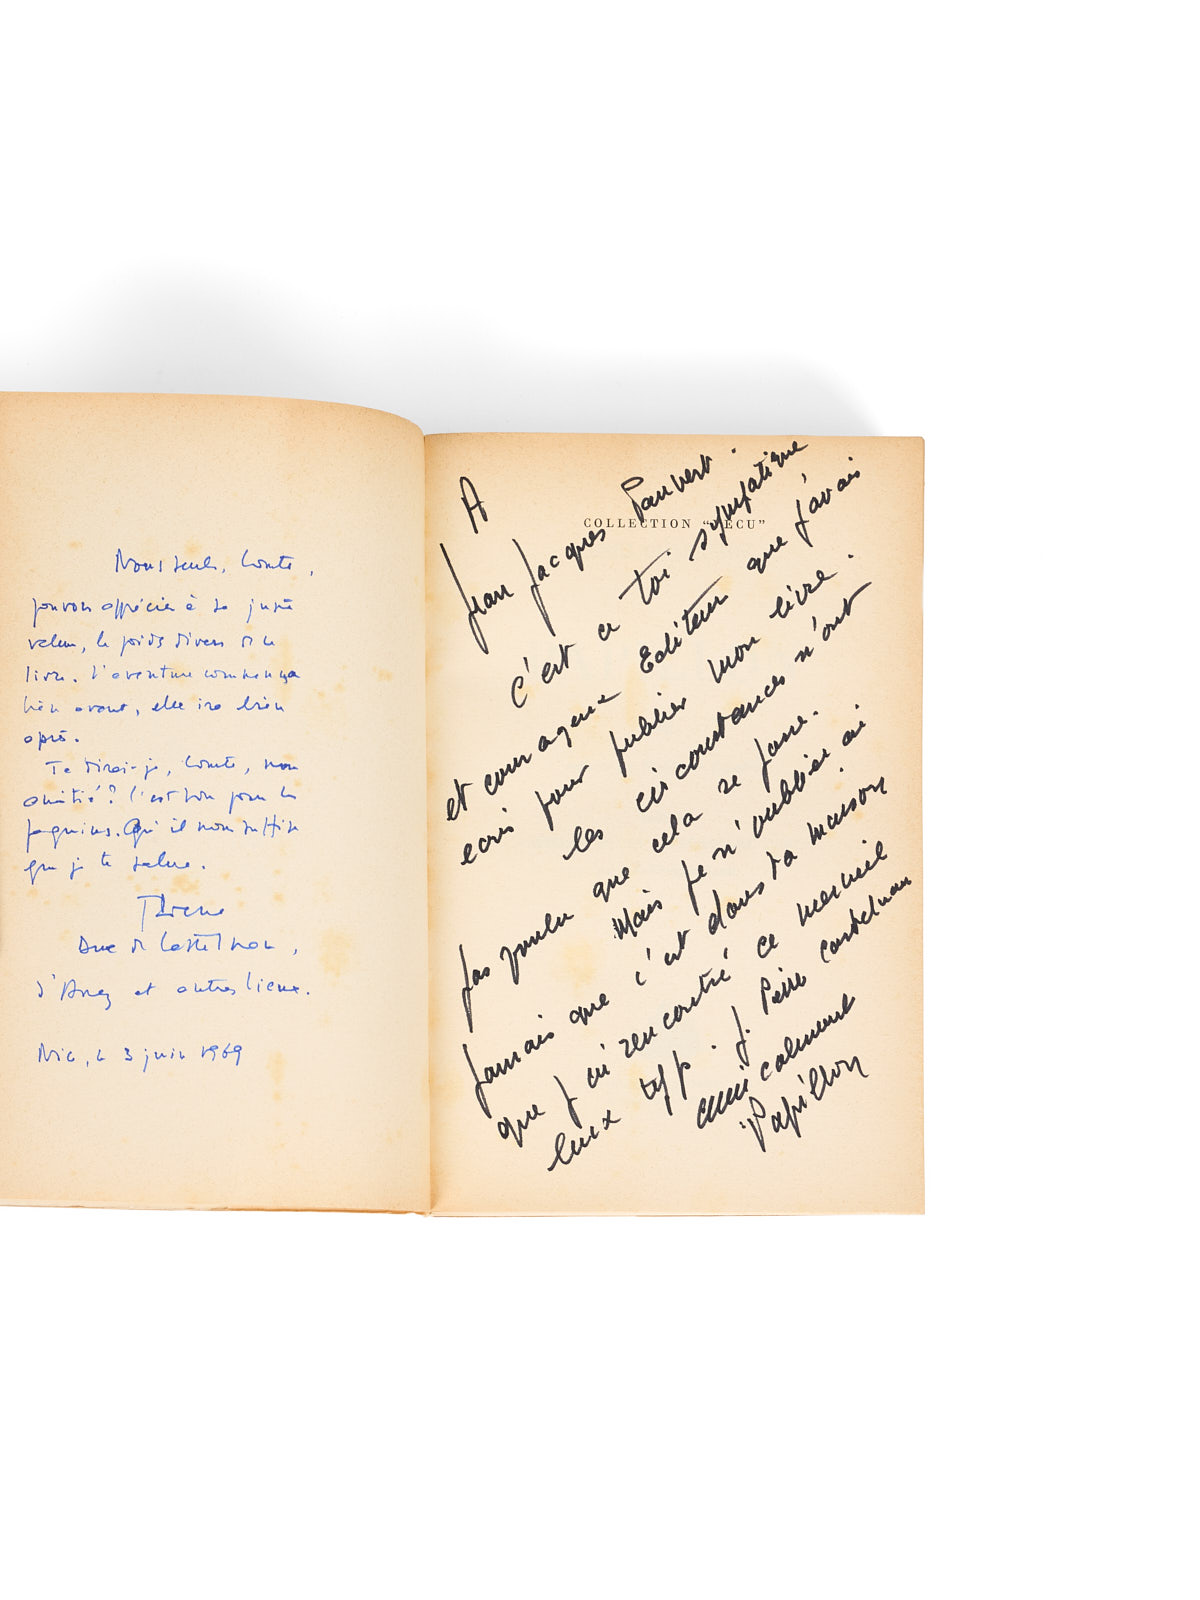 Nous seuls, Comte,
pouvons apprécier à sa juste
valeur, le poids divers de ce
livre. L'aventure commença
bien avant, elle ira bien
après.
Te dirai-je, Comte, mon
amitié? C'est bon pour les
faquins. Qu'il nous suffise
que je te salue.
Duc de Castelnau,
d'Anez et autres lieux.
Nice, le 3 juin 1969
COLLECTION "VÉCU"
A
Jean Jacques Pauvert.
c'est a toi sympatique
et courageux Editeur que j'avais
ecris pour publier mon livre.
les circonstances n'ont
pas voulu que cela se fasse.
Mais je n'oublierai
jamais que c'est dans ta maison
que j'ai rencontré ce merveil
leux typ. J. Pierre Castelnau
amicalement
Papillon